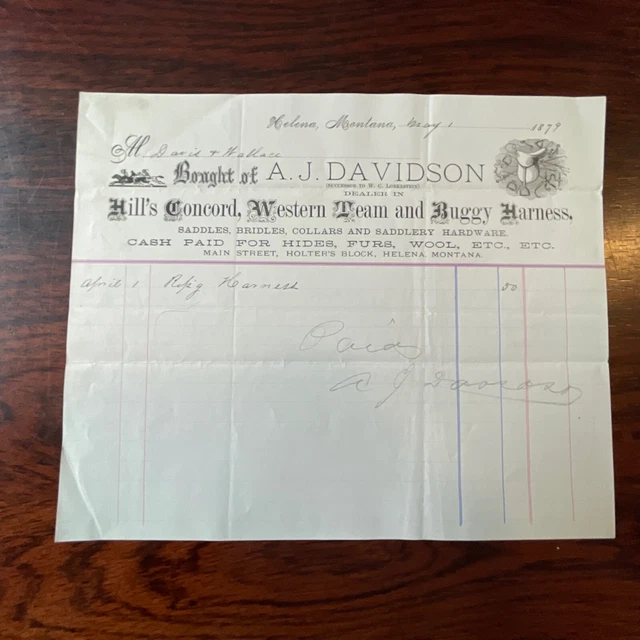 Helena, Montana, May 1 1879
M Davis & Wallace
Bought of A. J. DAVIDSON
(SUCCESSOR TO W. C. LOBENSTEIN)
DEALER IN
Hill's Concord, Western Team and Buggy Harness,
SADDLES, BRIDLES, COLLARS AND SADDLERY HARDWARE.
CASH PAID FOR HIDES, FURS, WOOL, ETC., ETC.
MAIN STREET, HOLTER'S BLOCK, HELENA, MONTANA.
April 1 Rep'g Harness 50
Paid
A J Davidson